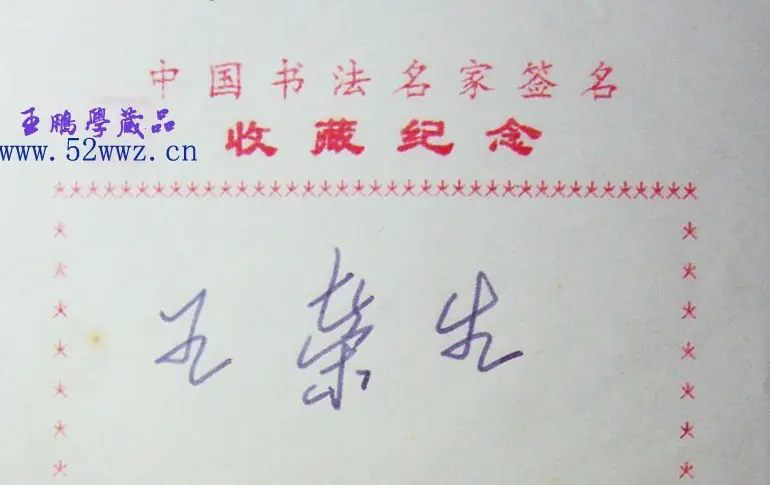 中国书法名家签名
王鵬學藏品
收藏纪念
www.52wwz.cn
王荣生